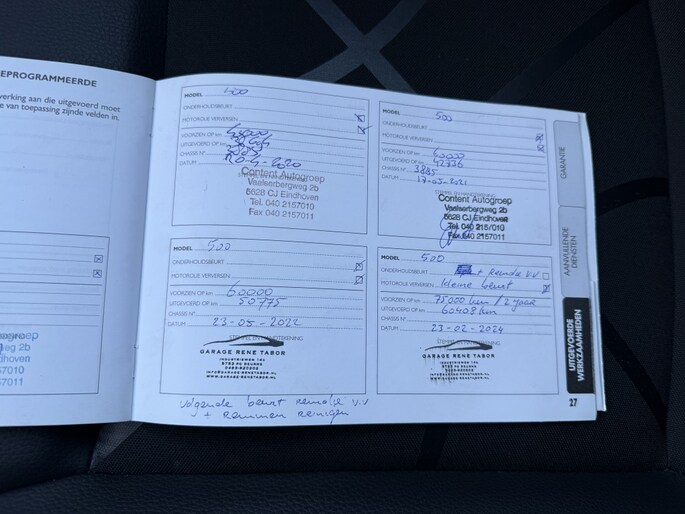 EPROGRAMMEERDE
erking aan die uitgevoerd moet
e van toepassing zijnde velden in.
MODEL 500
ONDERHOUDSBEURT
MOTOROLIE VERVERSEN
VOORZIEN OP km
UITGEVOERD OP km
CHASSIS N°
DATUM 10-9-2020
STEMPEL EN HANDTEKENING
Content Autogroep
Vaalserbergweg 2b
5628 CJ Eindhoven
Tel. 040 2157010
Fax 040 2157011
MODEL 500
ONDERHOUDSBEURT
MOTOROLIE VERVERSEN
VOORZIEN OP km 60000
UITGEVOERD OP km 42736
CHASSIS N° 3885
DATUM 17-03-2021
STEMPEL EN HANDTEKENING
Content Autogroep
Vaalserbergweg 2b
5628 CJ Eindhoven
Tel. 040 2157010
Fax 040 2157011
MODEL 500
ONDERHOUDSBEURT
MOTOROLIE VERVERSEN
VOORZIEN OP km 60000
UITGEVOERD OP km 50775
CHASSIS N°
DATUM 23-05-2022
STEMPEL EN HANDTEKENING
GARAGE RENE TABOR
MODEL 500
ONDERHOUDSBEURT Remolie V.V
MOTOROLIE VERVERSEN kleine beurt
VOORZIEN OP km 75000 km / 2 jaar
UITGEVOERD OP km 60408 km
CHASSIS N°
DATUM 23-02-2024
STEMPEL EN HANDTEKENING
GARAGE RENE TABOR
volgende beurt remolie V.V
+ Remmen reinigen
GARANTIE
AANVULLENDE
DIENSTEN
UITGEVOERDE
WERKZAAMHEDEN
27
groep
eg 2b
dhoven
57010
57011